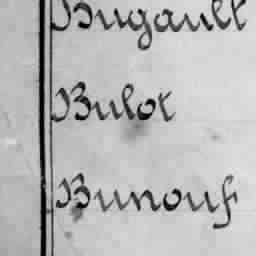 Bugault
Bulot
Bunouf